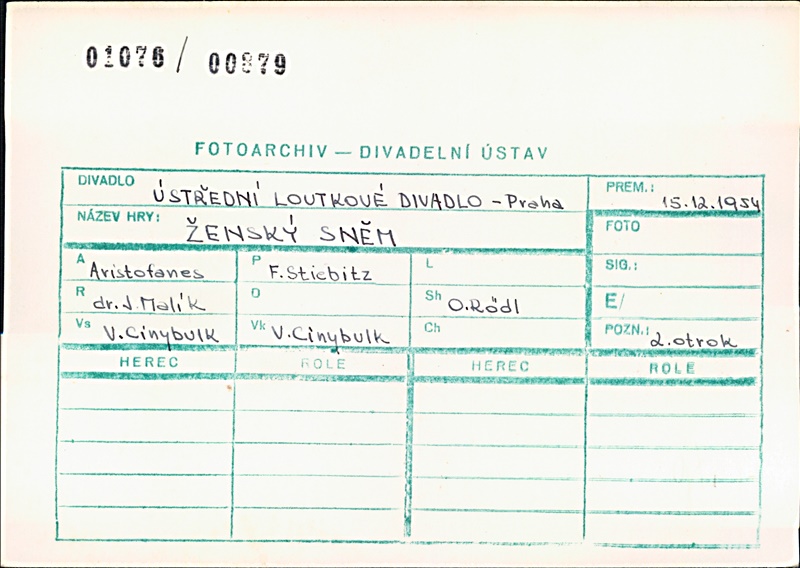 01076 / 00879
FOTOARCHIV — DIVADELNÍ ÚSTAV
DIVADLO ÚSTŘEDNÍ LOUTKOVÉ DIVADLO - Praha
PREM.: 15.12.1954
NÁZEV HRY: ŽENSKÝ SNĚM
FOTO
A Aristofanes P F. Stiebitz L
SIG.:
R dr. J. Malík D Sh O. Rödl
E/
Vs V. Cinybulk Vk V. Cinybulk Ch
POZN.: 2. otrok
HEREC ROLE HEREC ROLE